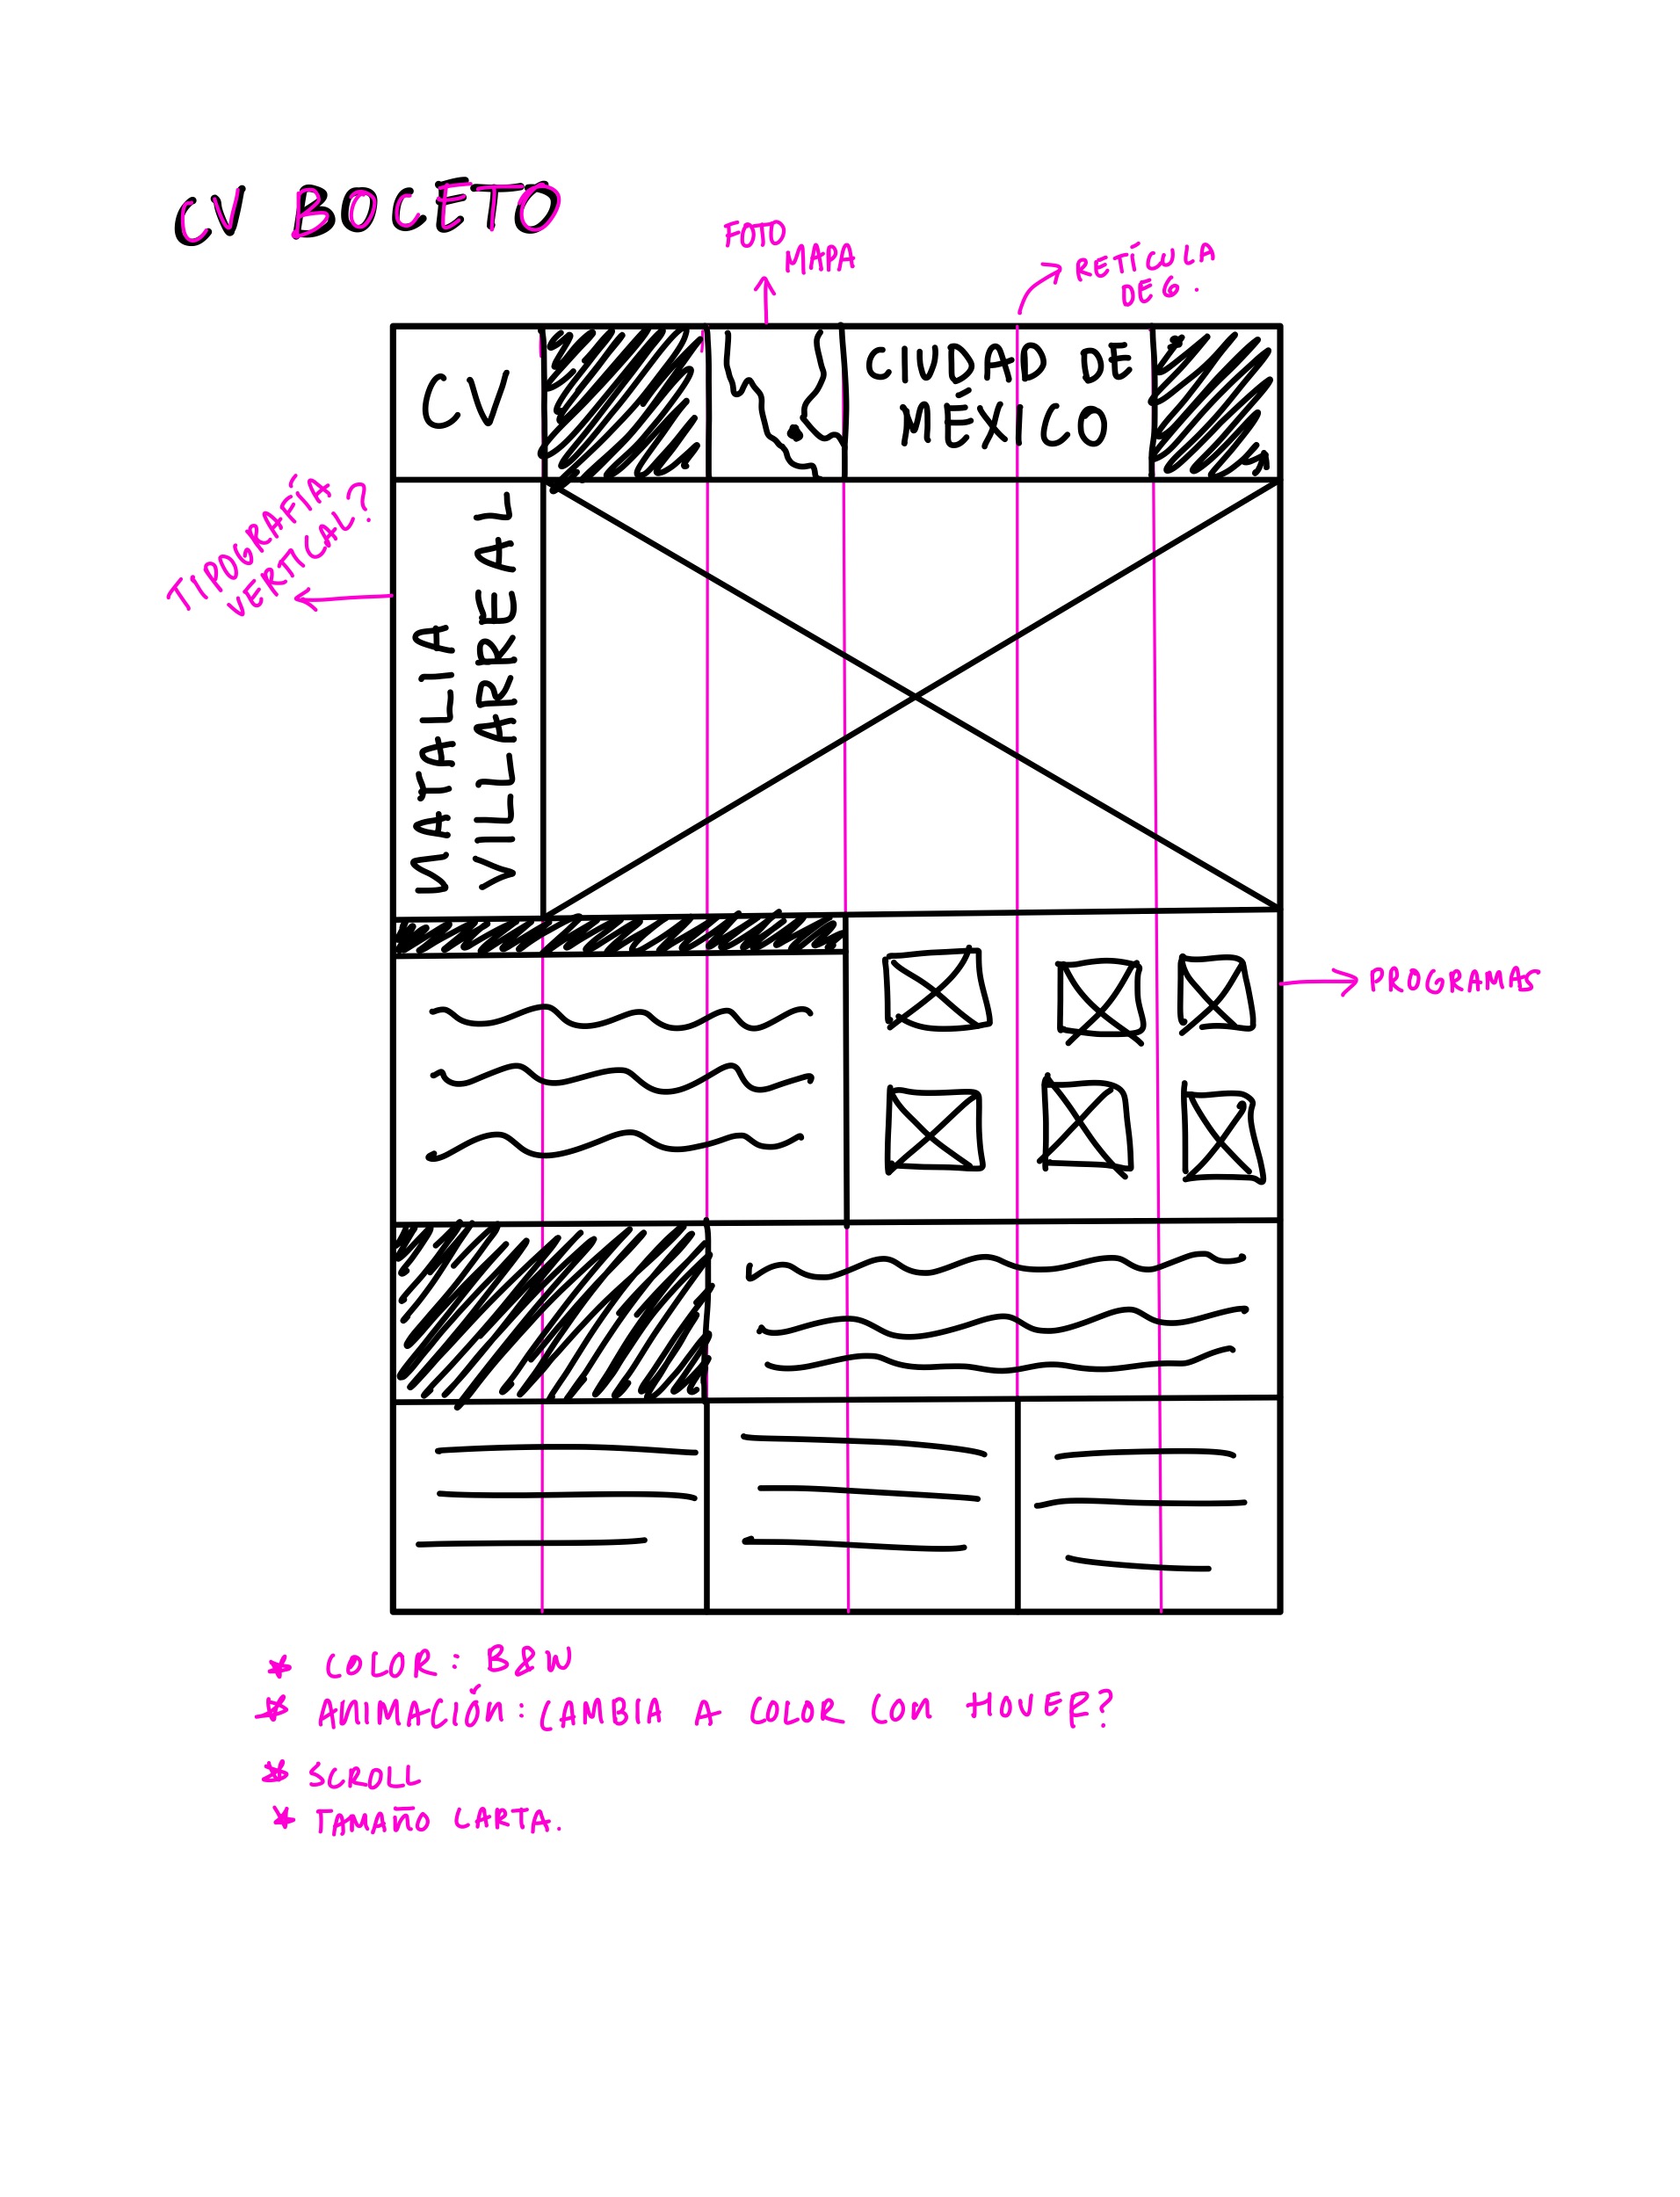 CV BOCETO
FOTO
MAPA
RETÍCULA
DE 6.
CV
CIUDAD DE
MÉXICO
TIPOGRAFÍA
VERTICAL?
NATALIA
VILLARREAL
PROGRAMAS
* COLOR: B&W
* ANIMACIÓN: CAMBIA A COLOR CON HOVER?
* SCROLL
* TAMAÑO CARTA.